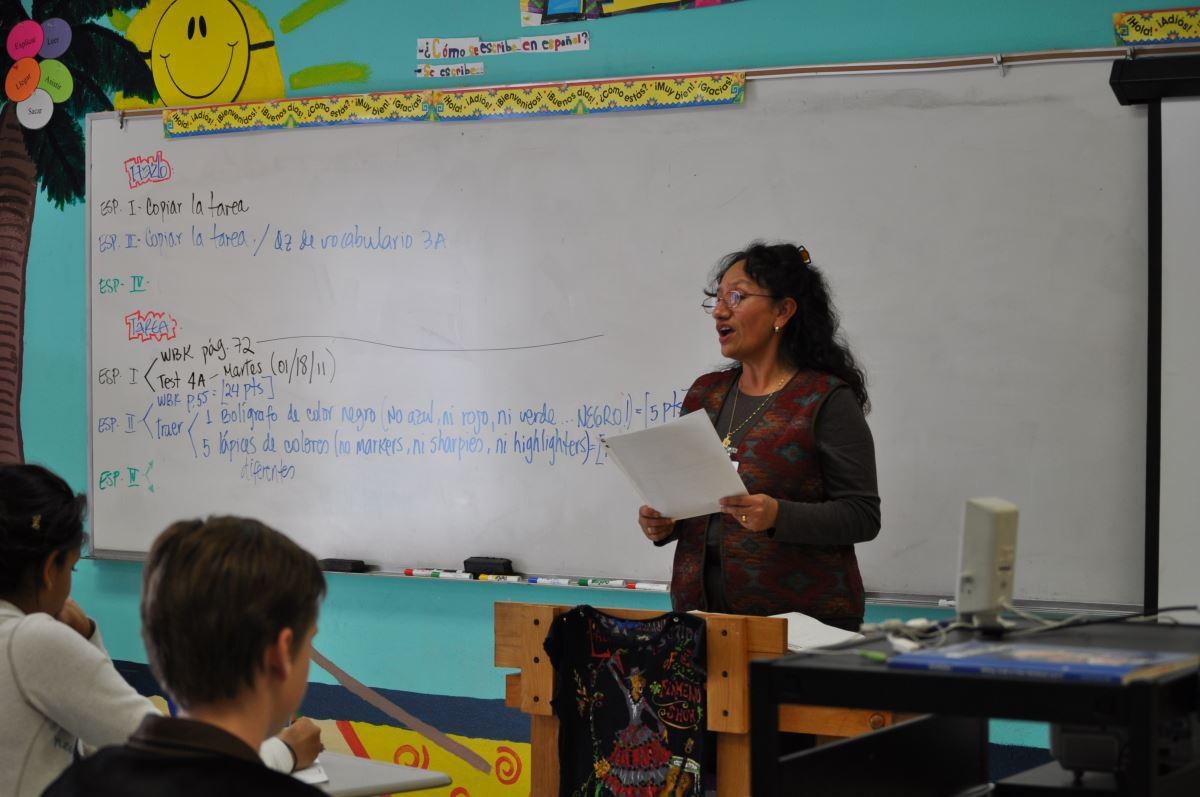 Explicar
Leer
Llegar
Asistir
Sacar
-¿Cómo se escribe en español?
-Se escribe...
¡Hola! ¡Adiós!
¡Hola! ¡Adiós! ¡Bienvenidos! ¡Buenos días! ¿Cómo estás? ¡Muy bien! ¡Gracias! ¡Hola! ¡Adiós! ¡Bienvenidos! ¡Buenos días! ¿Cómo estás? ¡Muy bien! ¡Gracias!
Hazlo
ESP. I - Copiar la tarea
ESP. II - Copiar la tarea / de vocabulario 3A
ESP- IV-
Tarea
ESP I WBK pág. 72
Test 4A - Martes (01/18/11)
ESP II WBK p.55 = [24 pts]
Traer 1 Bolígrafo de color negro (no azul, ni rojo, ni verde ... NEGRO!) = [5 pts
5 lápices de colores (no markers, ni sharpies, ni highlighters) = [
diferentes
ESP. IV